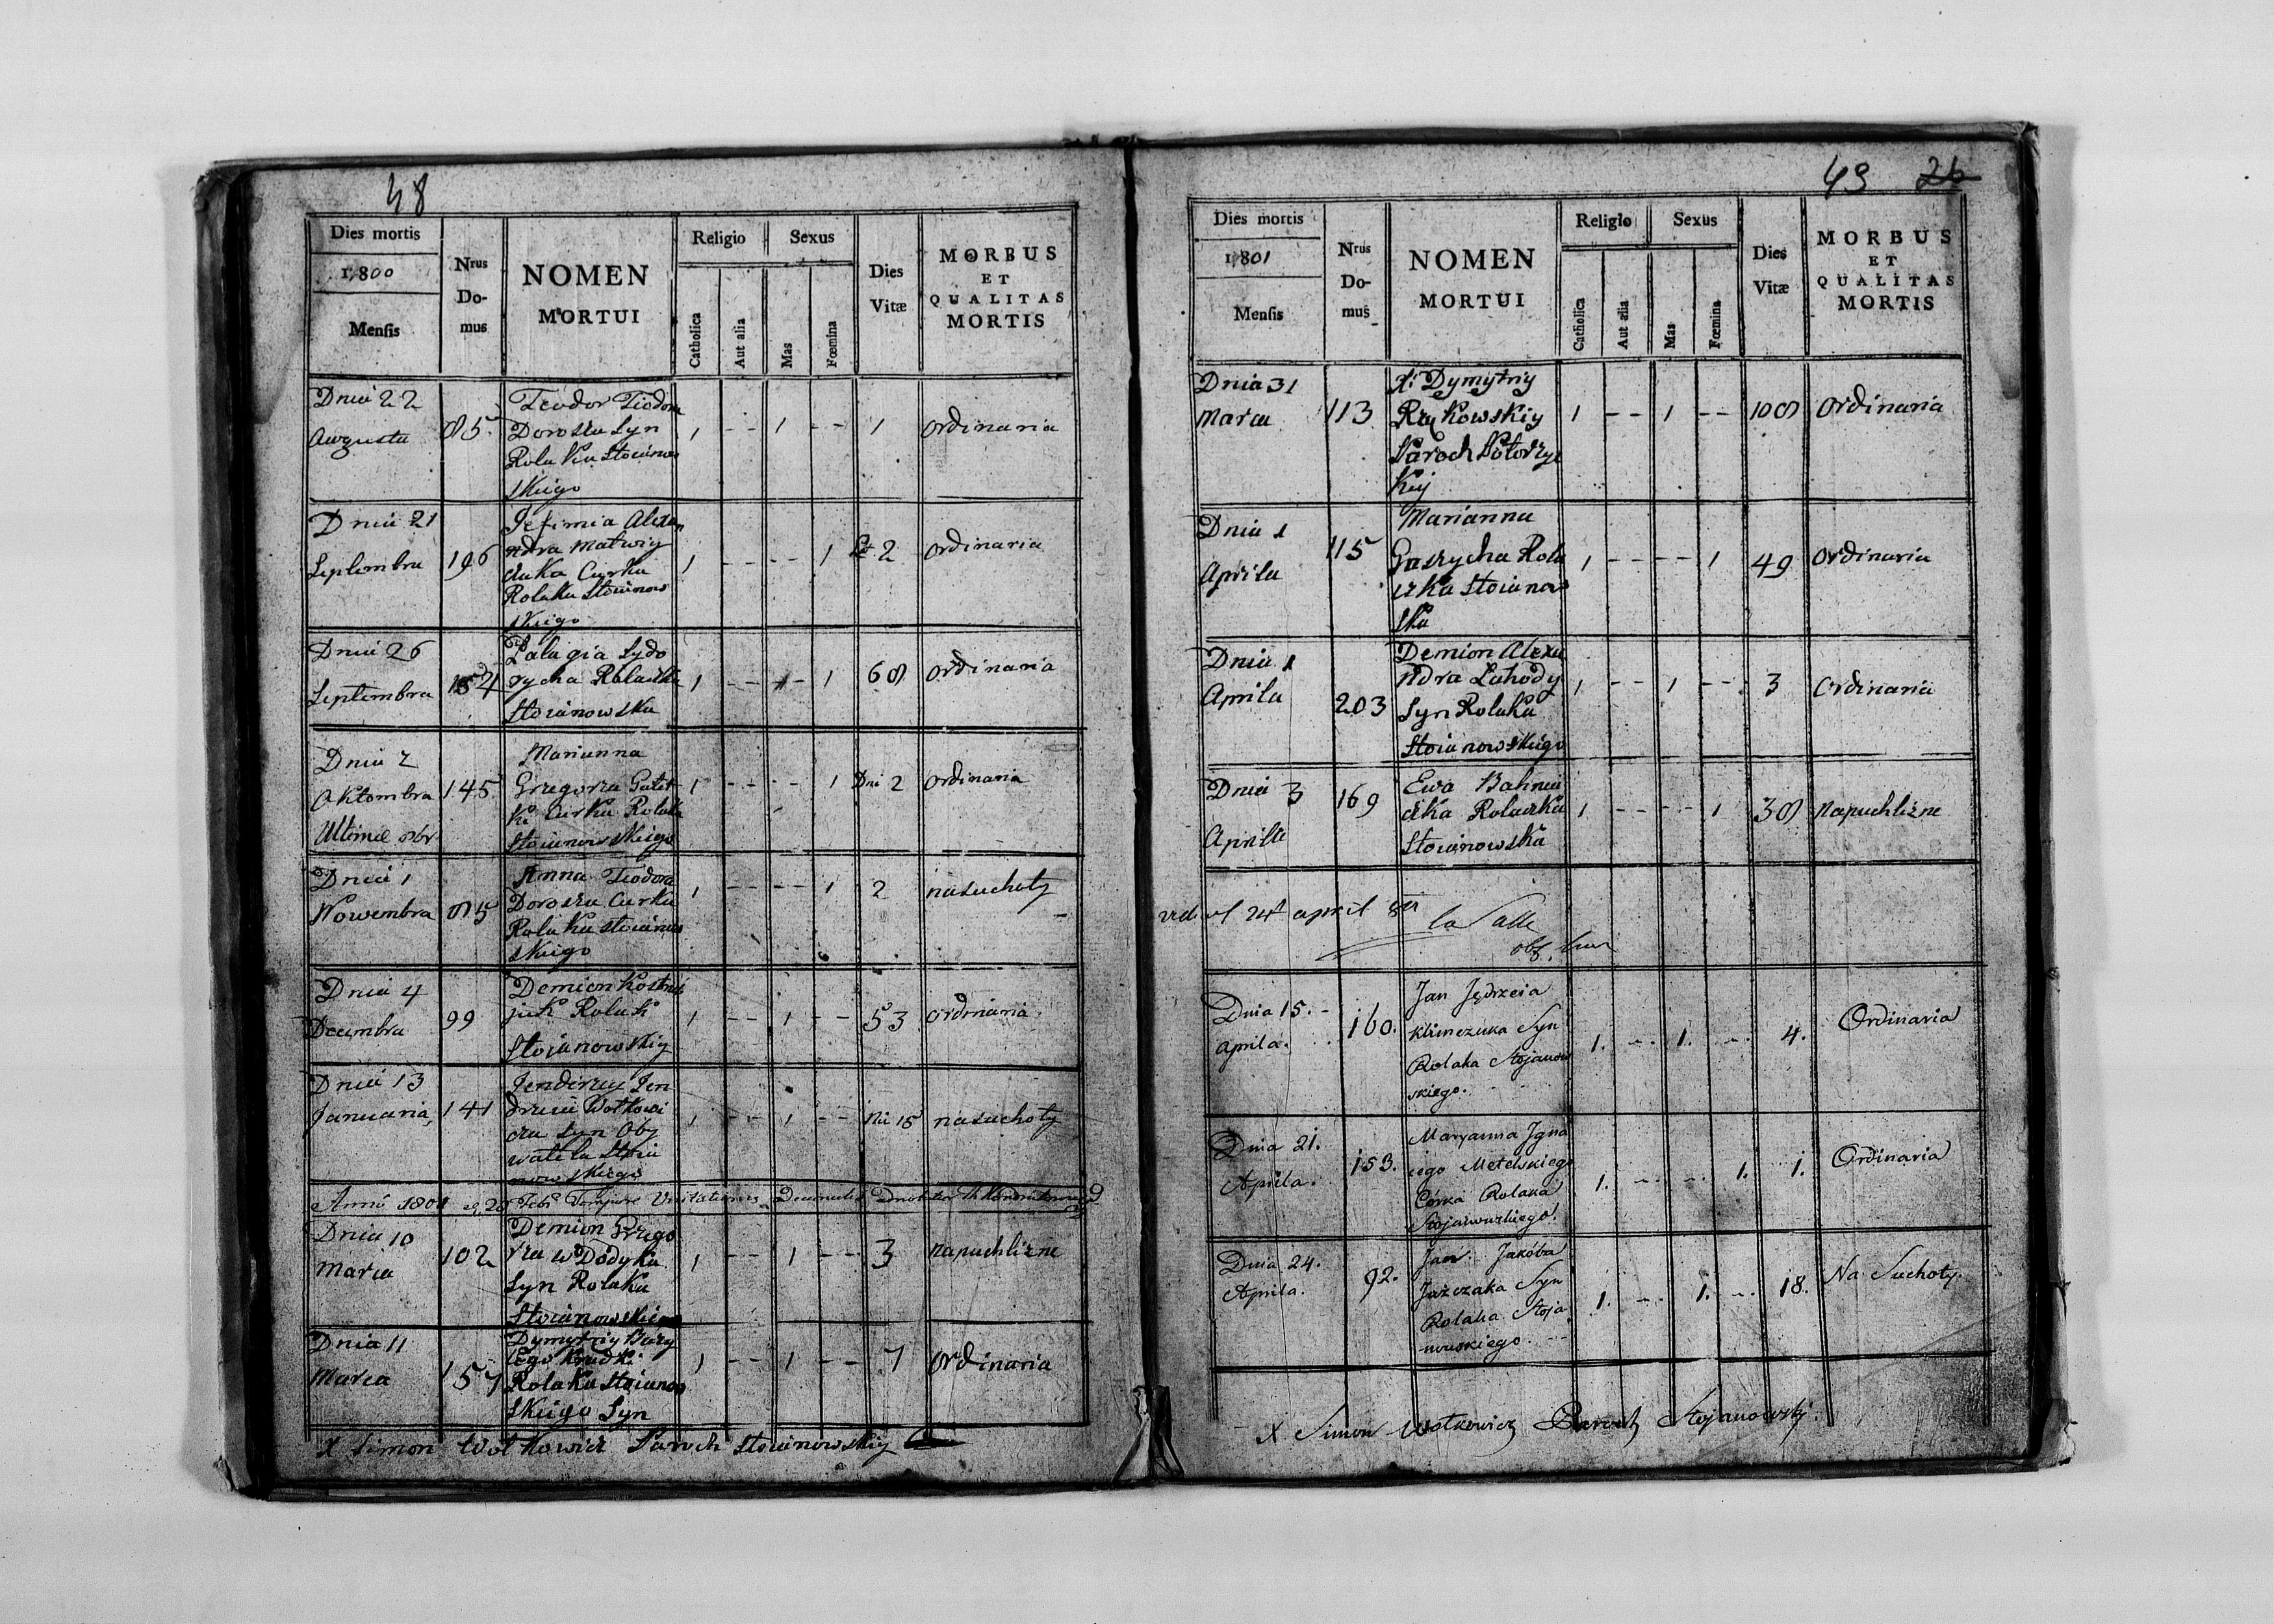 48
Dies mortis
1,800
Mensis
Nrus
Do-
mus
NOMEN
MORTUI
Religio
Catholica
Aut alia
Sexus
Mas
Fœmina
Dies
Vitæ
MORBUS
ET
QUALITAS
MORTIS
Dnia 22
Augusta
85
Teodor Tiodora
Dorosza Syn
Rolaka Stoianow
skiego
1 -- 1 -- 1 ordinaria
Dnia 21
Septembra
196
Jefimia Alexa
ndra Matwiy
czuka Curka
Rolaka Stoianow
skiego
1 -- -- 1 2 ordinaria
Dnia 26
Septembra
Palagia Sydo
rycha Rolaczka
Stoianowska
1 -- 1 68 ordinaria
Dnia 2
Oktombra
145
Marianna
Grzegorza
Curka Rolaka
Stoianowskiego
1 -- -- 1 Dni 2 ordinaria
Dnia 1
Nowembra
85
Anna Tiodora
Dorosza Curka
Rolaka Stoianow
skiego
1 -- -- 1 2 na suchoty
Dnia 4
Decembra
99
Demion Kostiu
juk Rolak
Stoianowskiy
1 -- 1 -- 53 ordinaria
Dnia 13
Januaria
141
Jendrzey Jen
drzeia Wotkowi
cza Syn Oby
watela Stoia
nowskiego
1 -- 1 -- 15 na suchoty
Anno 1801
Dnia 10
Marca
102
Demion Grzego
rza w Dodyka
Syn Rolaka
Stoianowskiego
1 -- 1 -- 3 napuchlizne
Dnia 11
Marca
157
Dymytriy Bazy
lego Kradki
Rolaka Stoianow
skiego Syn
1 -- 1 -- 7 ordinaria
X Simon Wotkowicz Paroch Stoianowskiy
49 26
Dies mortis
1,801
Mensis
Nrus
Do-
mus
NOMEN
MORTUI
Religio
Catholica
Aut alia
Sexus
Mas
Fœmina
Dies
Vitæ
MORBUS
ET
QUALITAS
MORTIS
Dnia 31
Marca
113
X: Dymytriy
Rzykowskiy
Paroch Potorzyc
kiy
1 -- 1 -- 108 ordinaria
Dnia 1
Aprila
115
Marianna
Gaszycha Rola
czka Stoianow
ska
1 -- -- 1 49 ordinaria
Dnia 1
Aprila
203
Demion Alexa
ndra Lahody
Syn Rolaka
Stoianowskiego
1 -- 1 -- 3 ordinaria
Dnia 3
Aprila
169
Ewa Bahniu
czka Rolaczka
Stoianowska
1 -- -- 1 38 napuchlizne
24 april
la Salle
Dnia 15.
Aprila.
160.
Jan Jędrzeia
Klimczuka Syn
Rolaka Stojanow
skiego.
1. -. 1. -. 4. Ordinaria
Dnia 21.
Aprila.
153.
Maryanna Igna
cego Metelskiego
Córka Rolaka
Stojanowskiego.
1. -. -. 1. 1. Ordinaria
Dnia 24.
Aprila.
92.
Jan Jakóba
Jaszczaka Syn
Rolaka Stoja
nowskiego.
1. -. 1. -. 18. Na Suchoty.
X Simon Wotkowicz Paroch Stojanowsky.